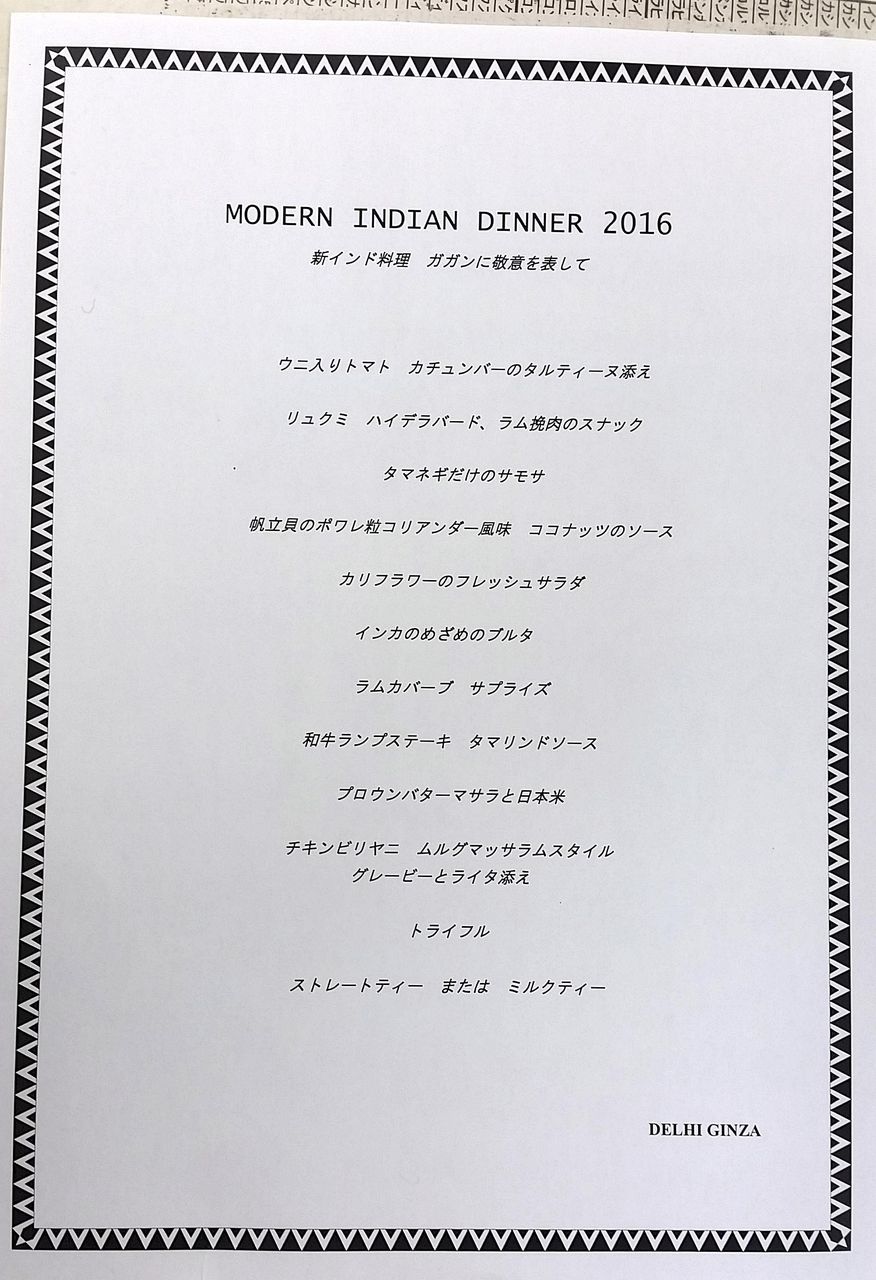 MODERN INDIAN DINNER 2016
新インド料理　ガガンに敬意を表して
ウニ入りトマト　カチュンバーのタルティーヌ添え
リュクミ　ハイデラバード、ラム挽肉のスナック
タマネギだけのサモサ
帆立貝のポワレ粒コリアンダー風味　ココナッツのソース
カリフラワーのフレッシュサラダ
インカのめざめのブルタ
ラムカバーブ　サプライズ
和牛ランプステーキ　タマリンドソース
プロウンバターマサラと日本米
チキンビリヤニ　ムルグマッサラムスタイル
グレービーとライタ添え
トライフル
ストレートティー　または　ミルクティー
DELHI GINZA